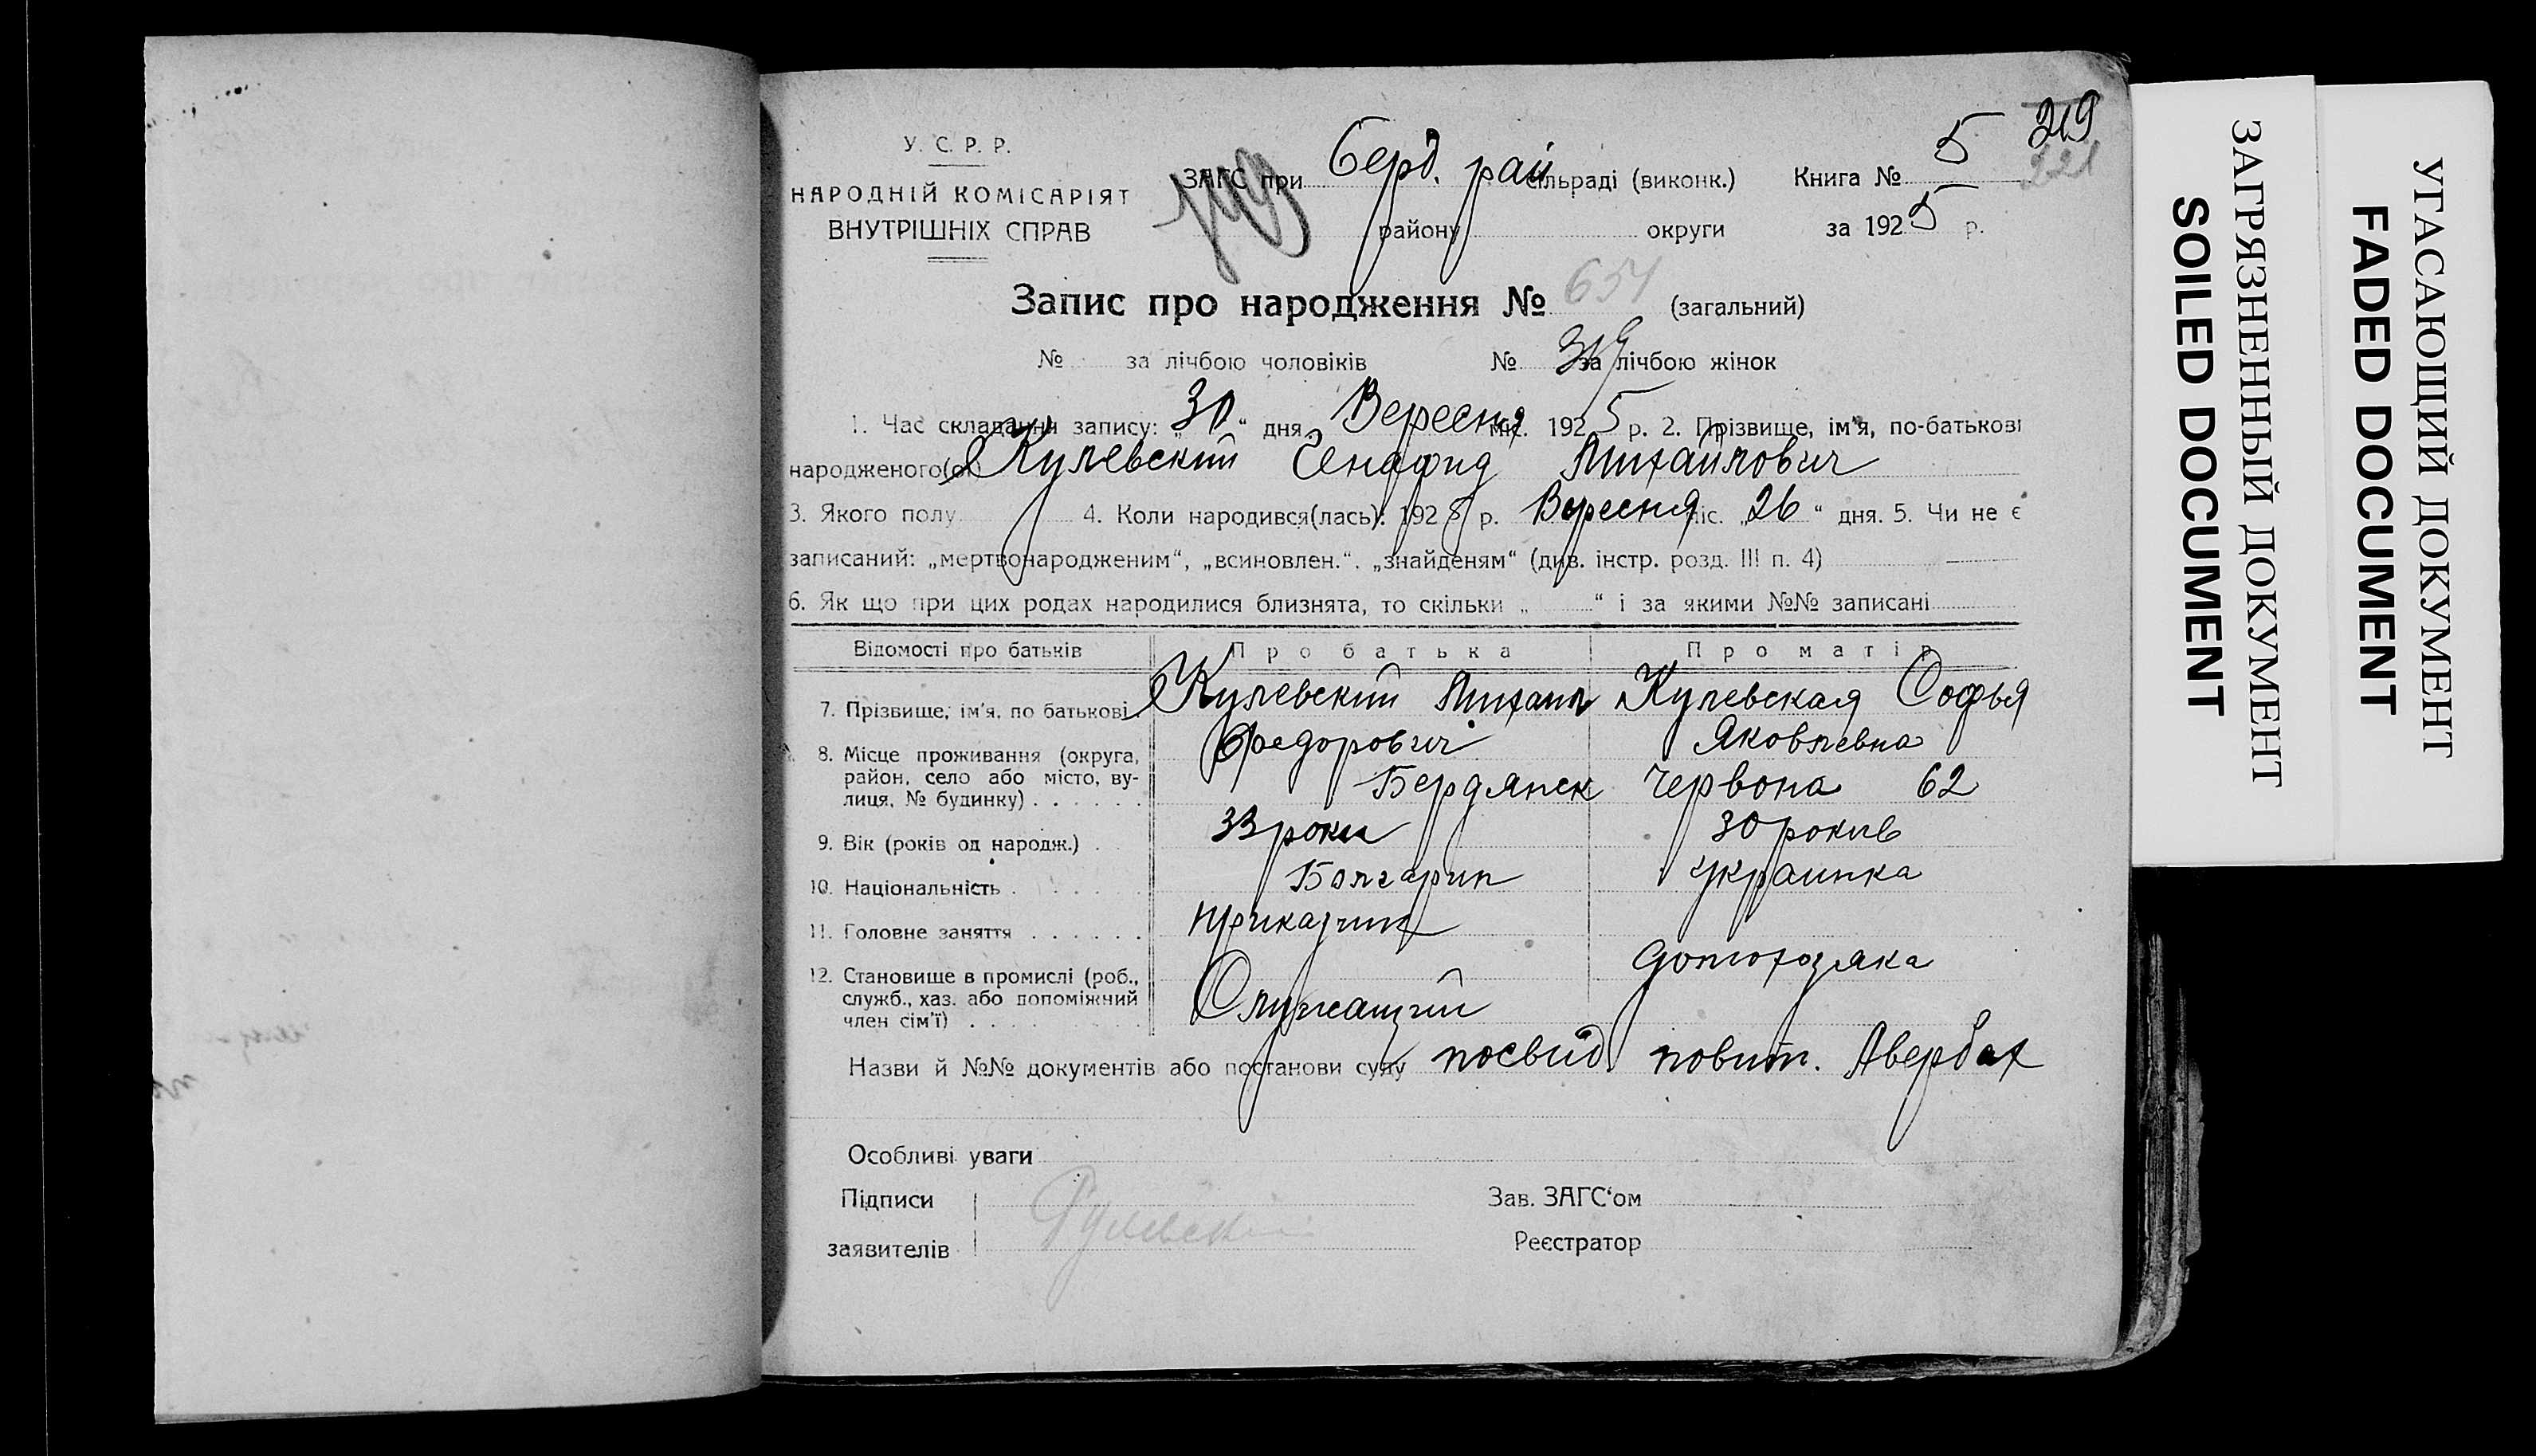 219
221
У. С. Р. Р.
НАРОДНІЙ КОМІСАРІЯТ
ВНУТРІШНІХ СПРАВ
ЗАГС при Берд. рай сільраді (виконк.) Книга № 5
району округи за 1925 р.
Запис про народження № 654 (загальний)
№ за лічбою чоловіків № 319 за лічбою жінок
1. Час складання запису: „30“ дня Вересня міс. 1925 р. 2. Прізвище, ім'я, по-батькові
народженого(ої) Кулевский Михайлович
3. Якого полу 4. Коли народився(лась): 192 р. Вересня міс. „26“ дня. 5. Чи не є
записаний: „мертвонародженим“, „всиновлен.“, „знайденям“ (див. інстр. розд. III п. 4) —
6. Як що при цих родах народилися близнята, то скільки „ “ і за якими №№ записані
Відомості про батьків Про батька Про матір
7. Прізвище, ім'я, по батькові Кулевский Михаил Кулевская Софья
Федорович Яковлевна
8. Місце проживання (округа,
район, село або місто, ву-
лиця, № будинку) Бердянск Червона 62
9. Вік (років од народж.) 33 роки 30 рокив
10. Національність Болгарин украинка
11. Головне заняття приказчик
домохозяка
12. Становище в промислі (роб.,
служб., хаз. або допоміжний
член сім'ї) Служащий
Назви й №№ документів або постанови суду посвид повит. Авербах
Особливі уваги
Підписи Зав. ЗАГС‘ом
заявителів Кулевский Реєстратор
ЗАГРЯЗНЕННЫЙ ДОКУМЕНТ
SOILED DOCUMENT
УГАСАЮЩИЙ ДОКУМЕНТ
FADED DOCUMENT